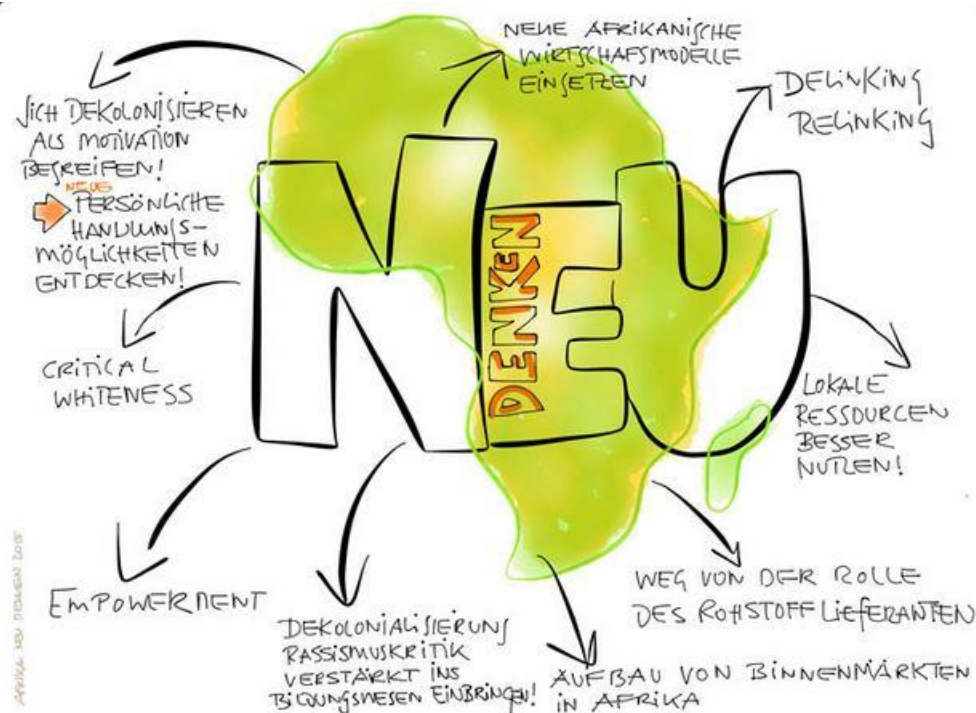 SICH DEKOLONISIEREN
ALS MOTIVATION
BEGREIFEN!
NEUE
PERSÖNLICHE
HANDLUNGS-
MÖGLICHKEITEN
ENTDECKEN!
NEUE AFRIKANISCHE
WIRTSCHAFTSMODELLE
EINSETZEN
DELINKING
RELINKING
NEU
DENKEN
CRITICAL
WHITENESS
LOKALE
RESSOURCEN
BESSER
NUTZEN!
EMPOWERMENT
DEKOLONIALISIERUNG
RASSISMUSKRITIK
VERSTÄRKT INS
BILDUNGSWESEN EINBRINGEN!
WEG VON DER ROLLE
DES ROHSTOFFLIEFERANTEN
AUFBAU VON BINNENMÄRKTEN
IN AFRIKA
AFRIKA NEU DENKEN 2015